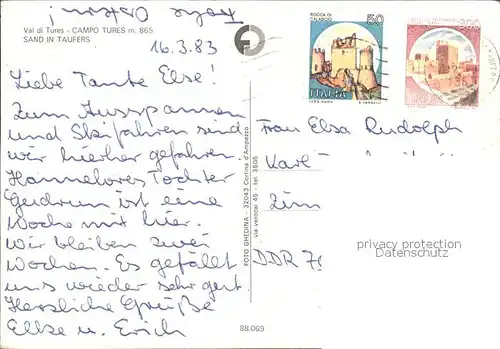 Frohe Ostern!
Val di Tures - CAMPO TURES m. 865
SAND IN TAUFERS
16.3.83
Liebe Tante Else!
Zum Ausspannen
und Skifahren sind
wir hierher gefahren.
Hannelores Tochter
Gudrun ist eine
Woche mit hier.
Wir bleiben zwei
Wochen. Es gefällt
uns wieder sehr gut.
Herzliche Grüße
Elke u. Erich
FOTO GHEDINA - 32043 Cortina d'Ampezzo
via verocai 45 - tel. 3506
88.069
ROCCA DI
CALASCIO
50
ITALIA
300
Frau Elsa Rudolph
Karl
Zim
DDR 70
privacy protection
Datenschutz